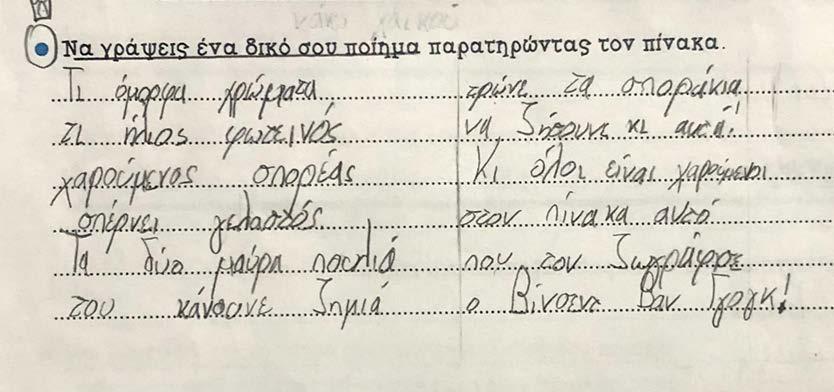 Να γράψεις ένα δικό σου ποίημα παρατηρώντας τον πίνακα.
Τι όμορφα χρώματα
τι ήλιος φωτεινός
χαρούμενος σπορέας
σπέρνει γελαστός
Τα δύο μαύρα πουλιά
του κάνουνε ζημιά
τρώνε τα σποράκια
να ζήσουνε κι αυτά!
Κι όλοι είναι χαρούμενοι
στον πίνακα αυτό
που τον ζωγράφισε
ο Βίνσεντ Βαν Γκογκ!